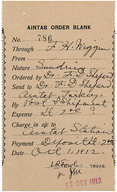 AINTAB ORDER BLANK
No. 786
Through F. H. Wiggin
From
Nature Sundries
Ordered by Dr. F. D. Shepard
Send to Dr. F. D. Shepard
Aintab, Turkey
By Post
Expense
Charge in a/c to
Aintab Station
Payment Deposited
Date Oct
TREAS.
17 DEC 1912